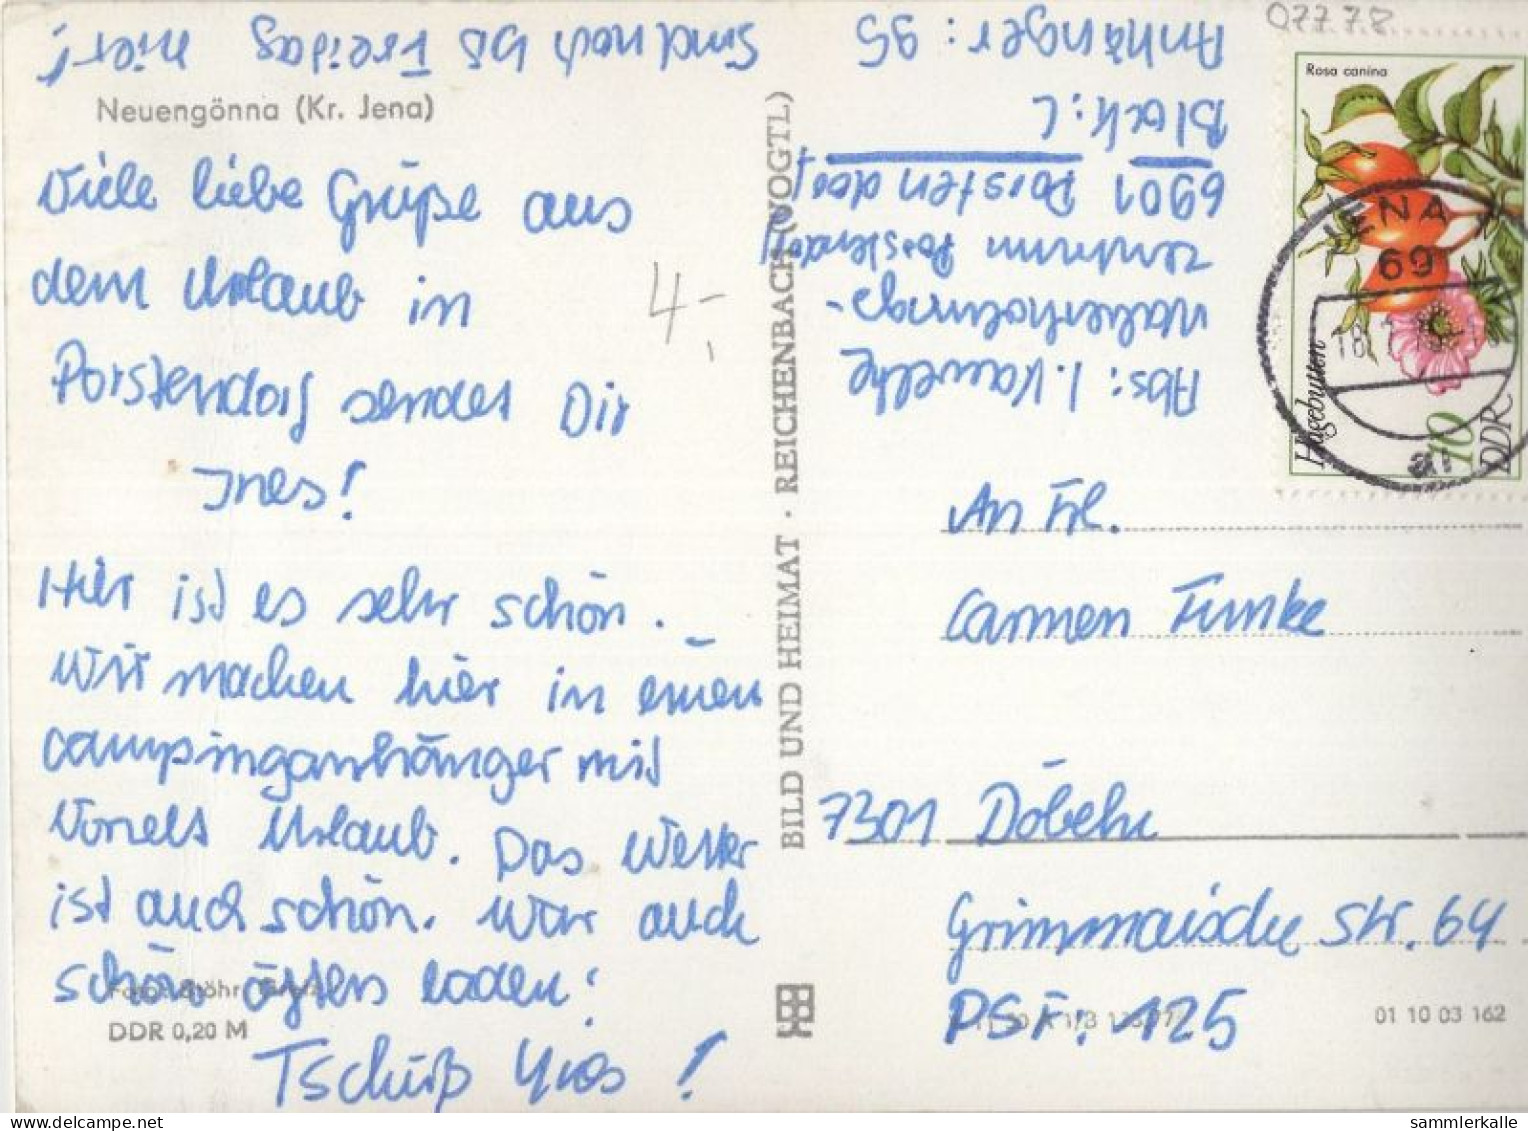 Sind noch bis Freitag hier!
Neuengönna (Kr. Jena)
Viele liebe Grüße aus
dem Urlaub in
Porstendorf sendet Dir
Ines!
Hier ist es sehr schön.
Wir machen hier in einen
Campinganhänger mit
Urlaub. Das Wetter
ist auch schön. War auch
schön öfters baden!
Tschüß Ines!
DDR 0,20 M
4,-
BILD UND HEIMAT · REICHENBACH (VOGTL)
Abs: I.
Naherholungs-
zentrum Porstendorf
6901 Porstendorf
Block: C
Anhänger: 95
077 78
Rosa canina
Hagebutten
10
DDR
JENA 1
69
18.7.
al
An Frl.
Carmen Funke
7301 Döbeln
Grimmaische Str. 64
PSF: 125
01 10 03 162